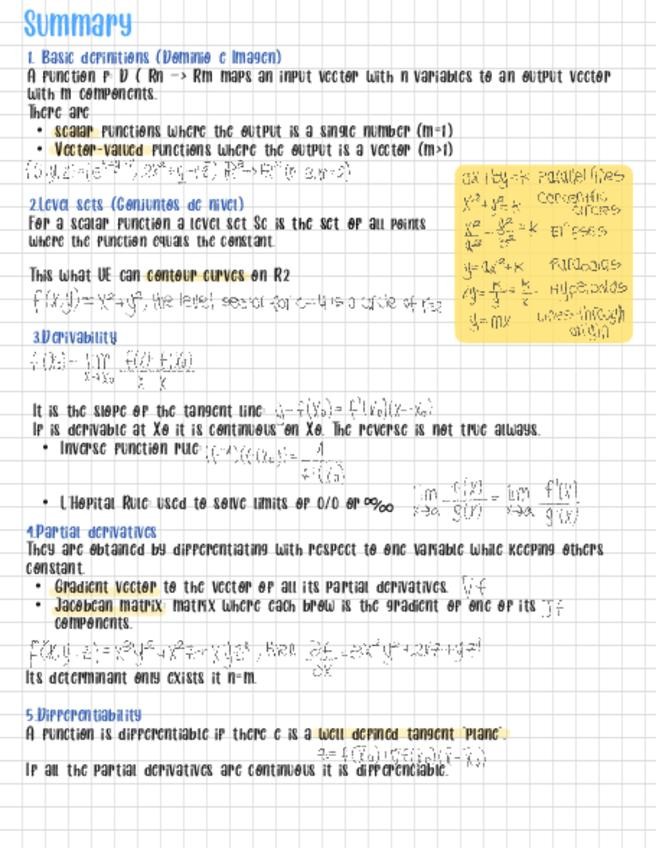 Summary
1. Basic definitions (Dominio e Imagen)
A function f: D ( Rn -> Rm maps an input vector with n variables to an output vector
with m components.
There are
• scalar functions where the output is a single number (m=1)
• Vector-valued functions where the output is a vector (m>1)
ax+by=k Parallel lines
x²+y²=k Concentric
circles
= k Elipses
y=ax²+k Parabolas
y=mx Lines through
origin
2.Level sets (Conjuntos de nivel)
For a scalar function a level set Sc is the set of all points
where the function equals the constant.
This what WE can contour curves on R2
f(x,y)=x²+y², the level set for c=4 is a circle of r=2
3.Derivability
It is the slope of the tangent line y-f(x₀)=f'(x₀)(x-x₀)
If is derivable at X0 it is continuous on X0. The reverse is not true always.
• Inverse function rule
• L'Hopital Rule used to solve limits of 0/0 or ∞/∞ lim x→a f(x)/g(x) = lim x→a f'(x)/g'(x)
4.Partial derivatives
They are obtained by differentiating with respect to one variable while keeping others
constant.
• Gradient vector to the vector of all its partial derivatives. ∇f
• Jacobean matrix matrix where each brow is the gradient of one of its Jf
components.
Its determinant only exists it n=m.
5.Differentiability
A function is differentiable if there e is a well defined tangent "plane".
If all the partial derivatives are continuous it is differenciable.